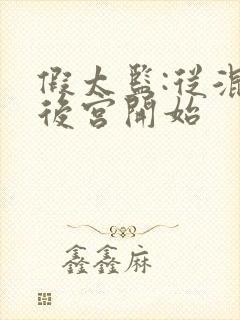 假太監:從混
後宮開始
鑫鑫麻